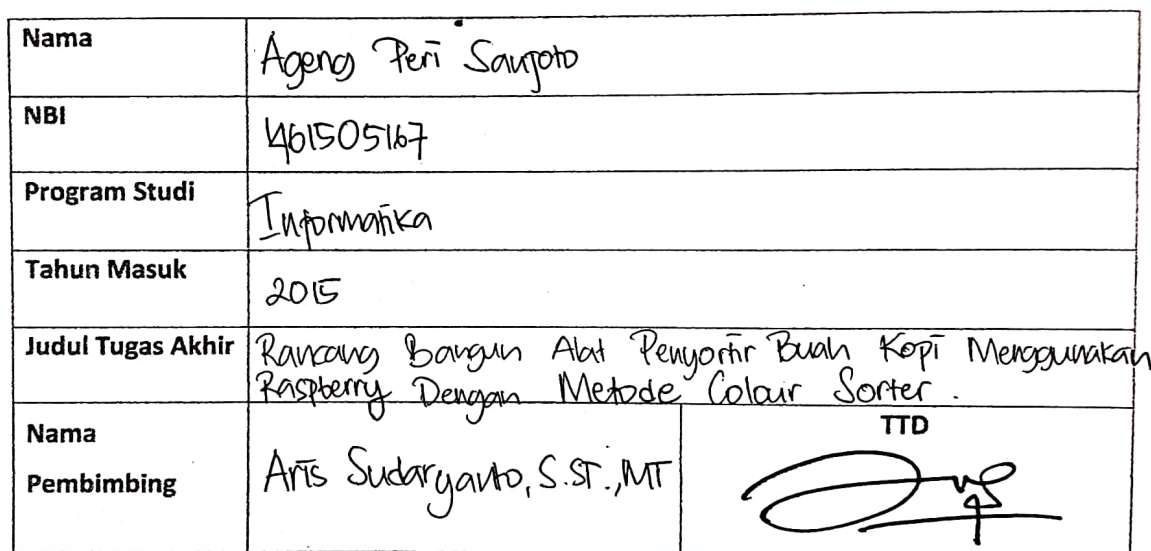 Nama Ageng Peri Saujoto
NBI 461505167
Program Studi Informatika
Tahun Masuk 2015
Judul Tugas Akhir Rancang Bangun Alat Penyortir Buah Kopi Menggunakan
Raspberry Dengan Metode Colour Sorter.
Nama
Pembimbing Aris Sudaryanto, S.ST., MT
TTD